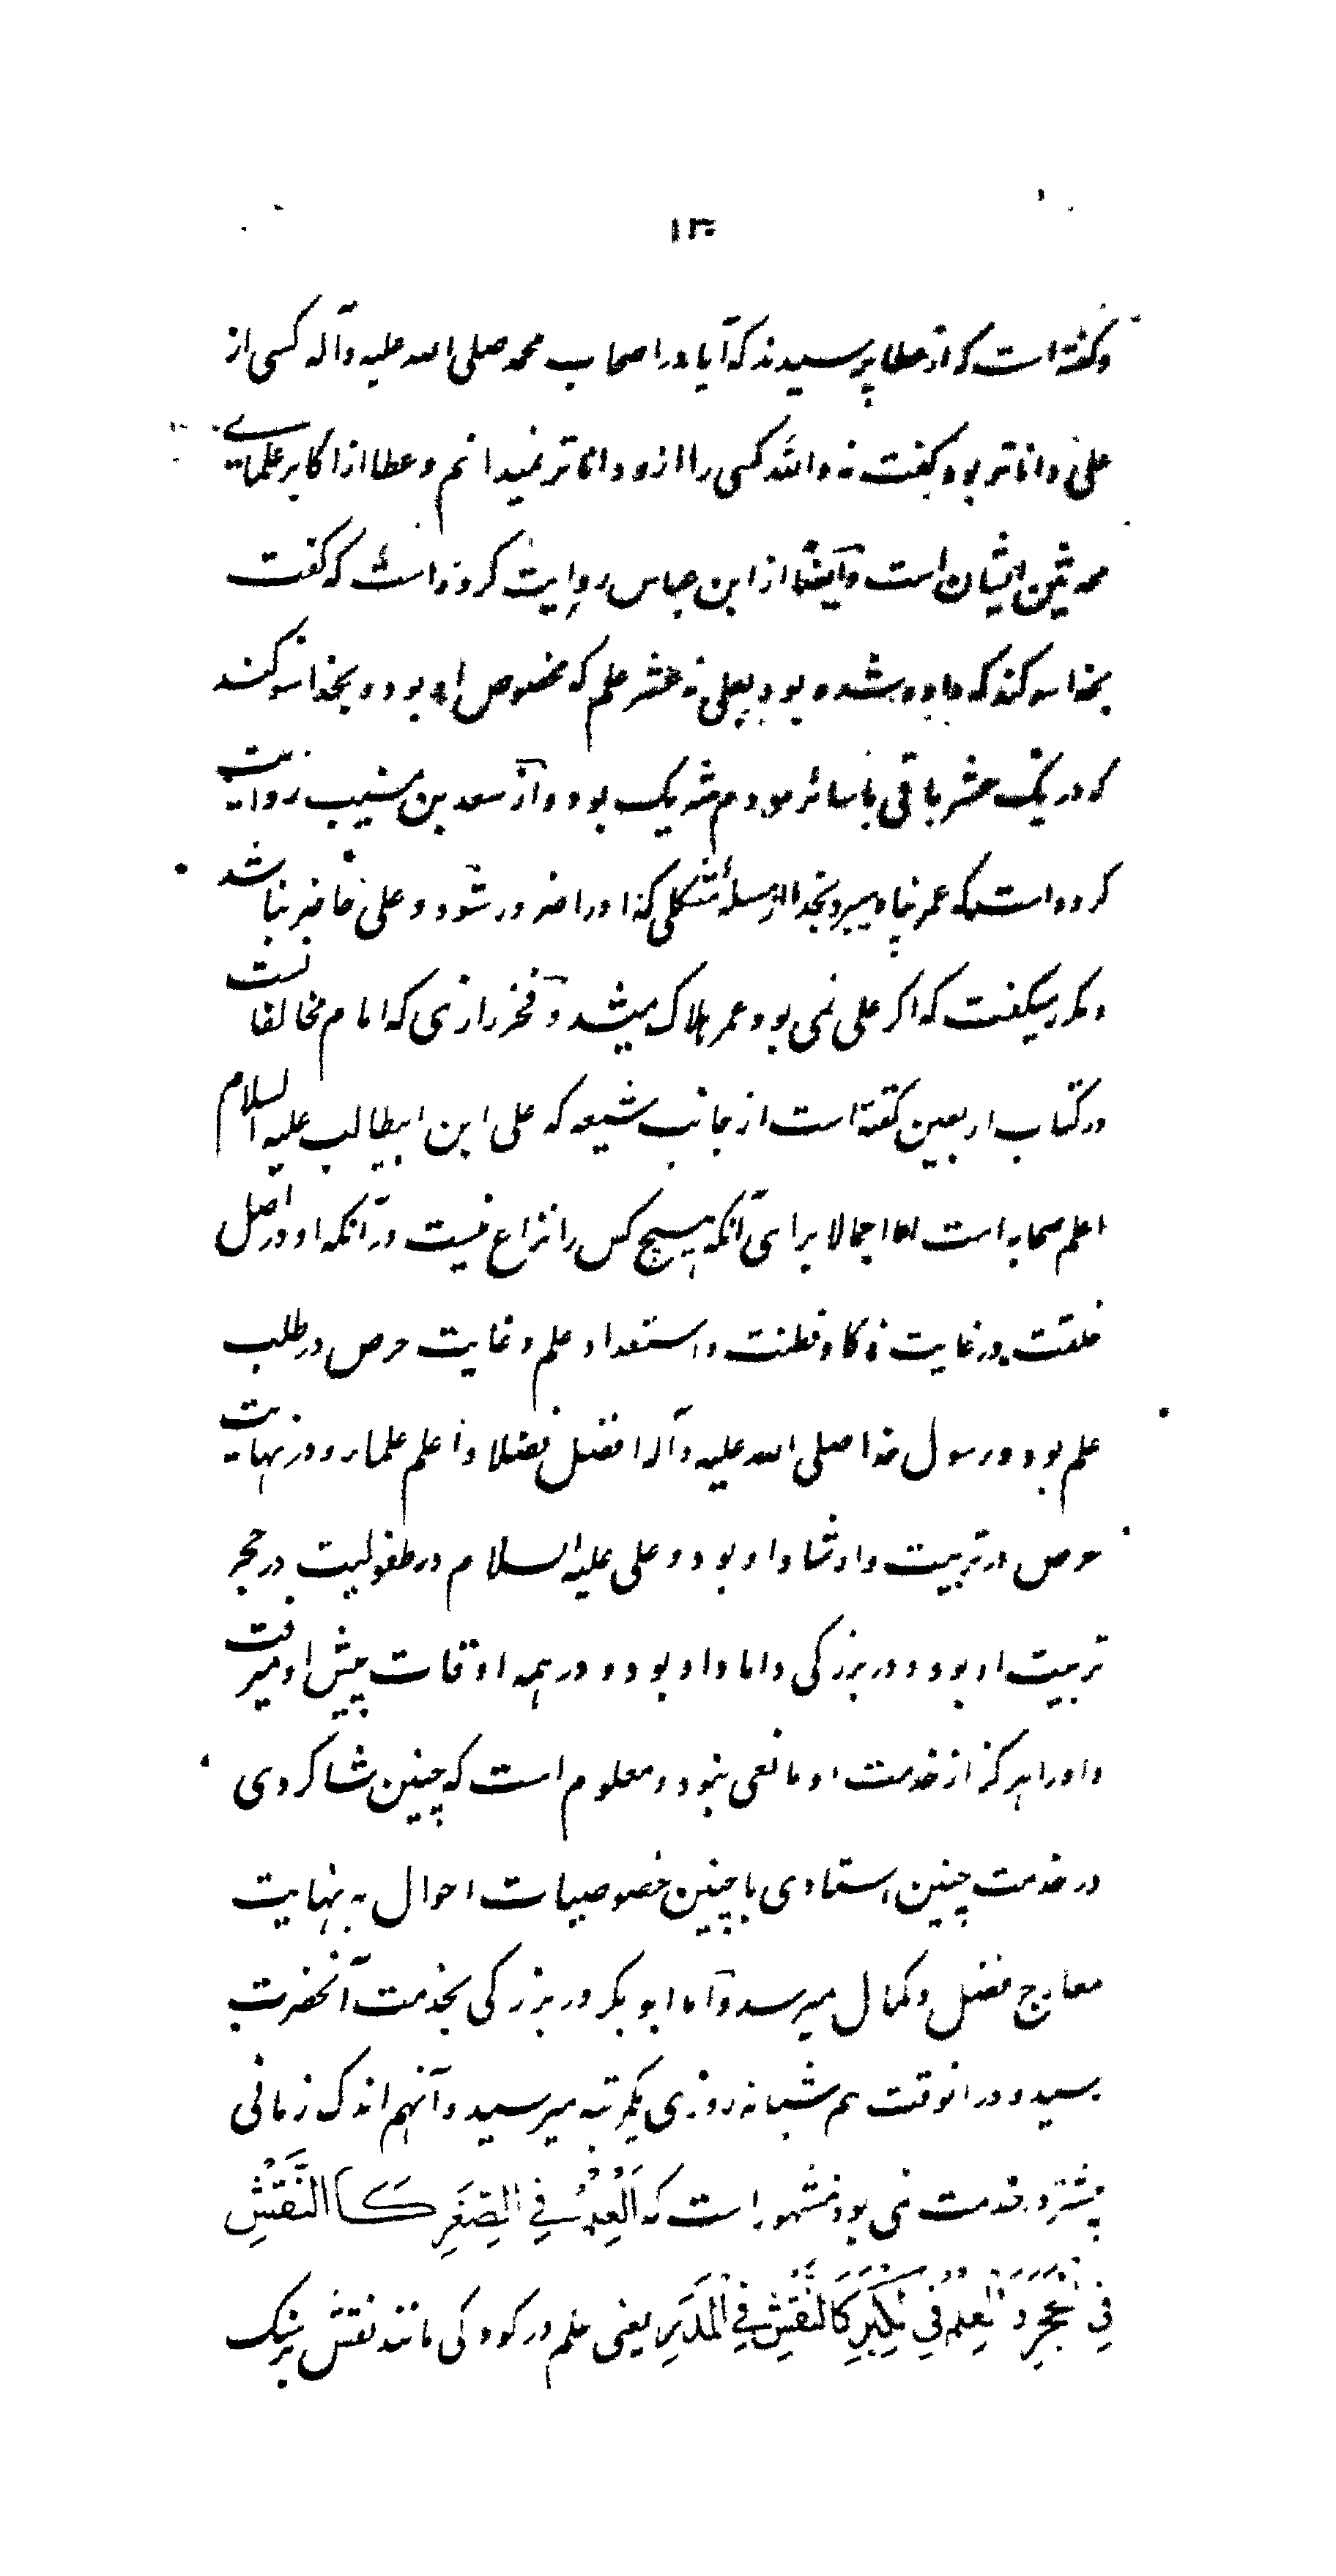 ۱۳۰
و گفته است که از عطا پرسیدند که آیا در اصحاب محمد صلی الله علیه و آله کسی از
علی داناتر بود گفت نه والله کسی را از و داناتر نمیدانم و عطا از اکابر علمای
محدثین ایشان است و ایضا از ابن عباس روایت کرده است که گفت
بخدا سوگند که داده شده بود بعلی نه عشر علم که مخصوص او بود و بخدا سوگند
که در یک عشر باقی با سائر مردم شریک بود و از سعد بن مسیب روایت
کرده است که عمر پناه میبرد بخدا از مسئله مشکلی که او را ضرور شود و علی حاضر نباشد
و مکرر میگفت که اگر علی نمی بود عمر هلاک میشد و فخر رازی که امام مخالفانست
در کتاب اربعین گفته است از جانب شیعه که علی ابن ابیطالب علیه السلام
اعلم صحابه است اما اجمالا برای آنکه هیچ کس را نزاع نیست در آنکه او در اصل
خلقت در غایت ذکا و فطنت و استعداد علم و غایت حرص در طلب
علم بود و رسول خدا صلی الله علیه و آله افضل فضلا و اعلم علما بود و در نهایت
حرص در تربیت و ارشاد او بود و علی علیه السلام در طفولیت در حجر
تربیت او بود و در بزرگی داماد او بود و در همه اوقات پیش او میرفت
و او را هرگز از خدمت او مانعی نبود و معلوم است که چنین شاگردی
در خدمت چنین استادی با چنین خصوصیات احوال به نهایت
معارج فضل و کمال میرسد و اما ابوبکر در بزرگی بخدمت آنحضرت
رسید و در انوقت هم شبانه روزی یکمرتبه میرسید و آنهم اندک زمانی
بیشتر در خدمت نمی بود و مشهور است که اَلْعِلْمُ فِی الصِّغَرِ کَالنَّقْشِ
فِی الْحَجَرِ وَ الْعِلْمُ فِی الْکِبَرِ کَالنَّقْشِ فِی الْمَدَرِ یعنی علم در کودکی مانند نقش بر سنگ